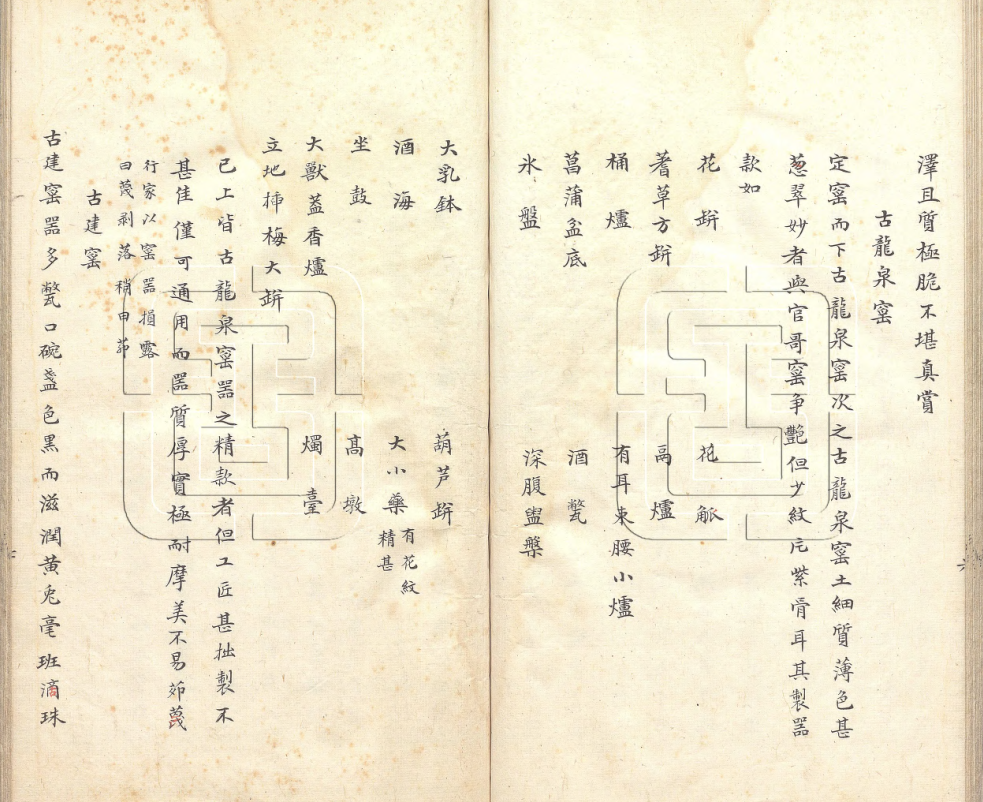 澤且質極脆不堪真賞
古龍泉窑
定窑而下古龍泉窑次之古龍泉窑土細質薄色甚
葱翠妙者與官哥窑争艷但少紋片紫骨耳其製器
款如
花缾 花觚
蓍草方缾 鬲爐
桶爐 有耳束腰小爐
菖蒲盆底 酒甏
氷盤 深腹盥槃
大乳鉢 葫芦缾
酒海 大小藥 有花紋精甚
坐鼓 髙墩
大獸蓋香爐 燭臺
立地揷梅大缾
已上皆古龍泉窑噐之精款者但工匠甚拙製不
甚佳僅可通用而噐質厚實極耐摩美不易茆蔑
行家以窑噐損露
曰蔑剥落稍曰茆
古建窑
古建窑噐多甏口碗盞色黒而滋潤黄兎毫班滴珠